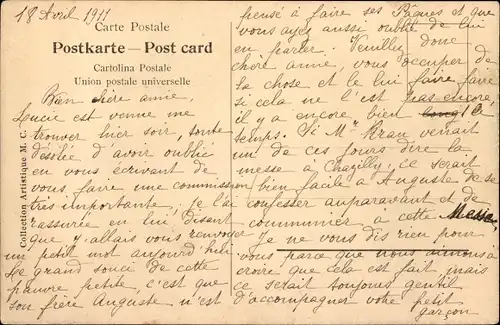 18 Avril 1911
Carte Postale
Postkarte — Post card
Cartolina Postale
Union postale universelle
Collection Artistique M. C.
Bien chère amie,
Lucie est venue me
trouver hier soir, toute
désolée d'avoir oublié
en vous écrivant de
vous faire une commission
très importante, je l'ai
rassurée en lui disant
que j'allais vous renvoyer
un petit mot aujourd'hui
Le grand souci de cette
pauvre petite, c'est que
son frère Auguste n'est
pensé à faire ses Pâques et que
vous ayez aussi oublié de lui
en parler. Veuillez donc
chère amie, vous occuper de
la chose et le lui faire faire
si cela ne l'est pas encore
il y a encore bien le
temps. Si Mr venait
un de ces jours dire la
messe à Chazilly, ce serait
bien facile à Auguste de se
confesser auparavant et de
communier à cette Messe,
Je ne vous dis rien pour
vous parce que nous aimons à
croire que cela est fait, mais
ce serait toujours gentil
d'accompagner votre petit
garçon